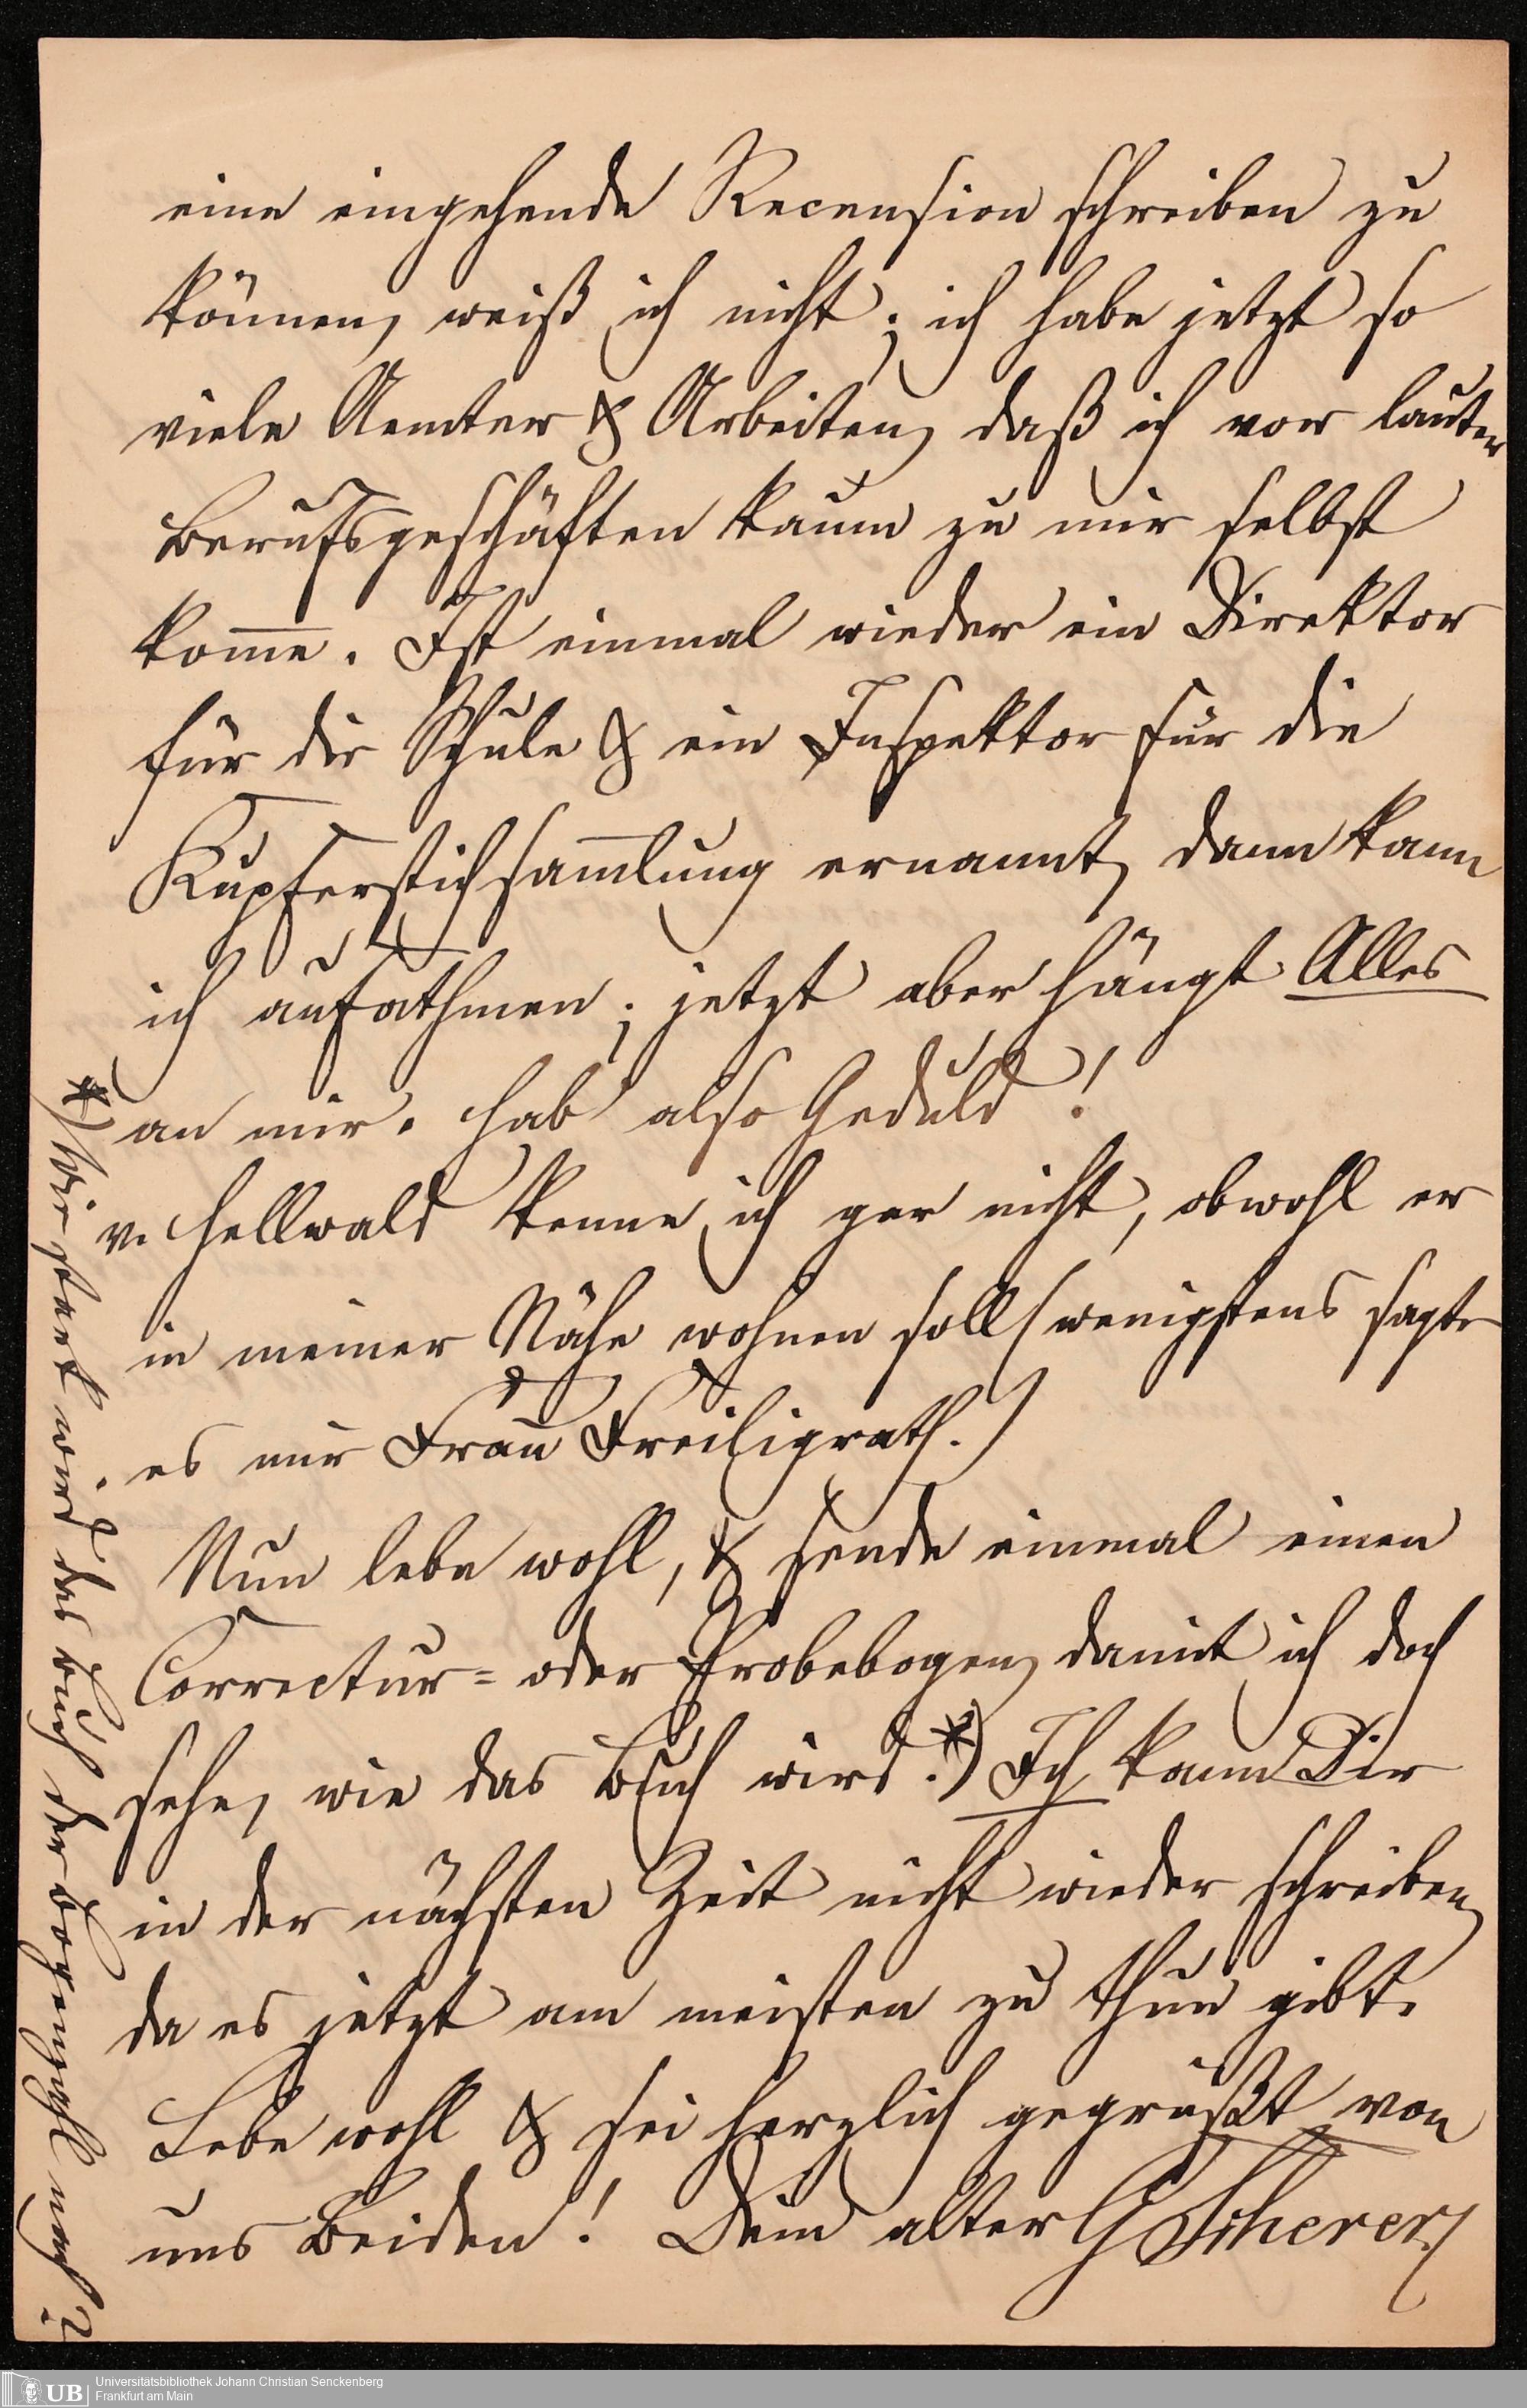 eine eingehende Recension schreiben zu
können, weiß ich nicht; ich habe jetzt so
viele Aemter & Arbeiten, daß ich vor lauter
Berufsgeschäften kaum zu mir selbst
kom̅e. Ist einmal wieder ein Direktor
für die Schule & ein Inspektor für die
Kupferstichsam̅lung ernannt, dann kann
ich aufathmen; jetzt aber hängt Alles
an mir. Hab' also Geduld!
v. Hellwald kenne ich gar nicht, obwohl er
in meiner Nähe wohnen soll (wenigstens sagte
es mir Frau Freiligrath.)
Nun lebe wohl, & sende einmal einen
Correctur= oder Probebogen, damit ich doch
sehe, wie das Buch wird.*) Ich kann Dir
in der nächsten Zeit nicht wieder schreiben,
da es jetzt am meisten zu thun gibt.
Lebe wohl & sei herzlich gegrüßt von
uns Beiden! Dein alter G Scherer
*) Wie stark wird das Buch der Bogenzahl nach?
UB Universitätsbibliothek Johann Christian Senckenberg
Frankfurt am Main